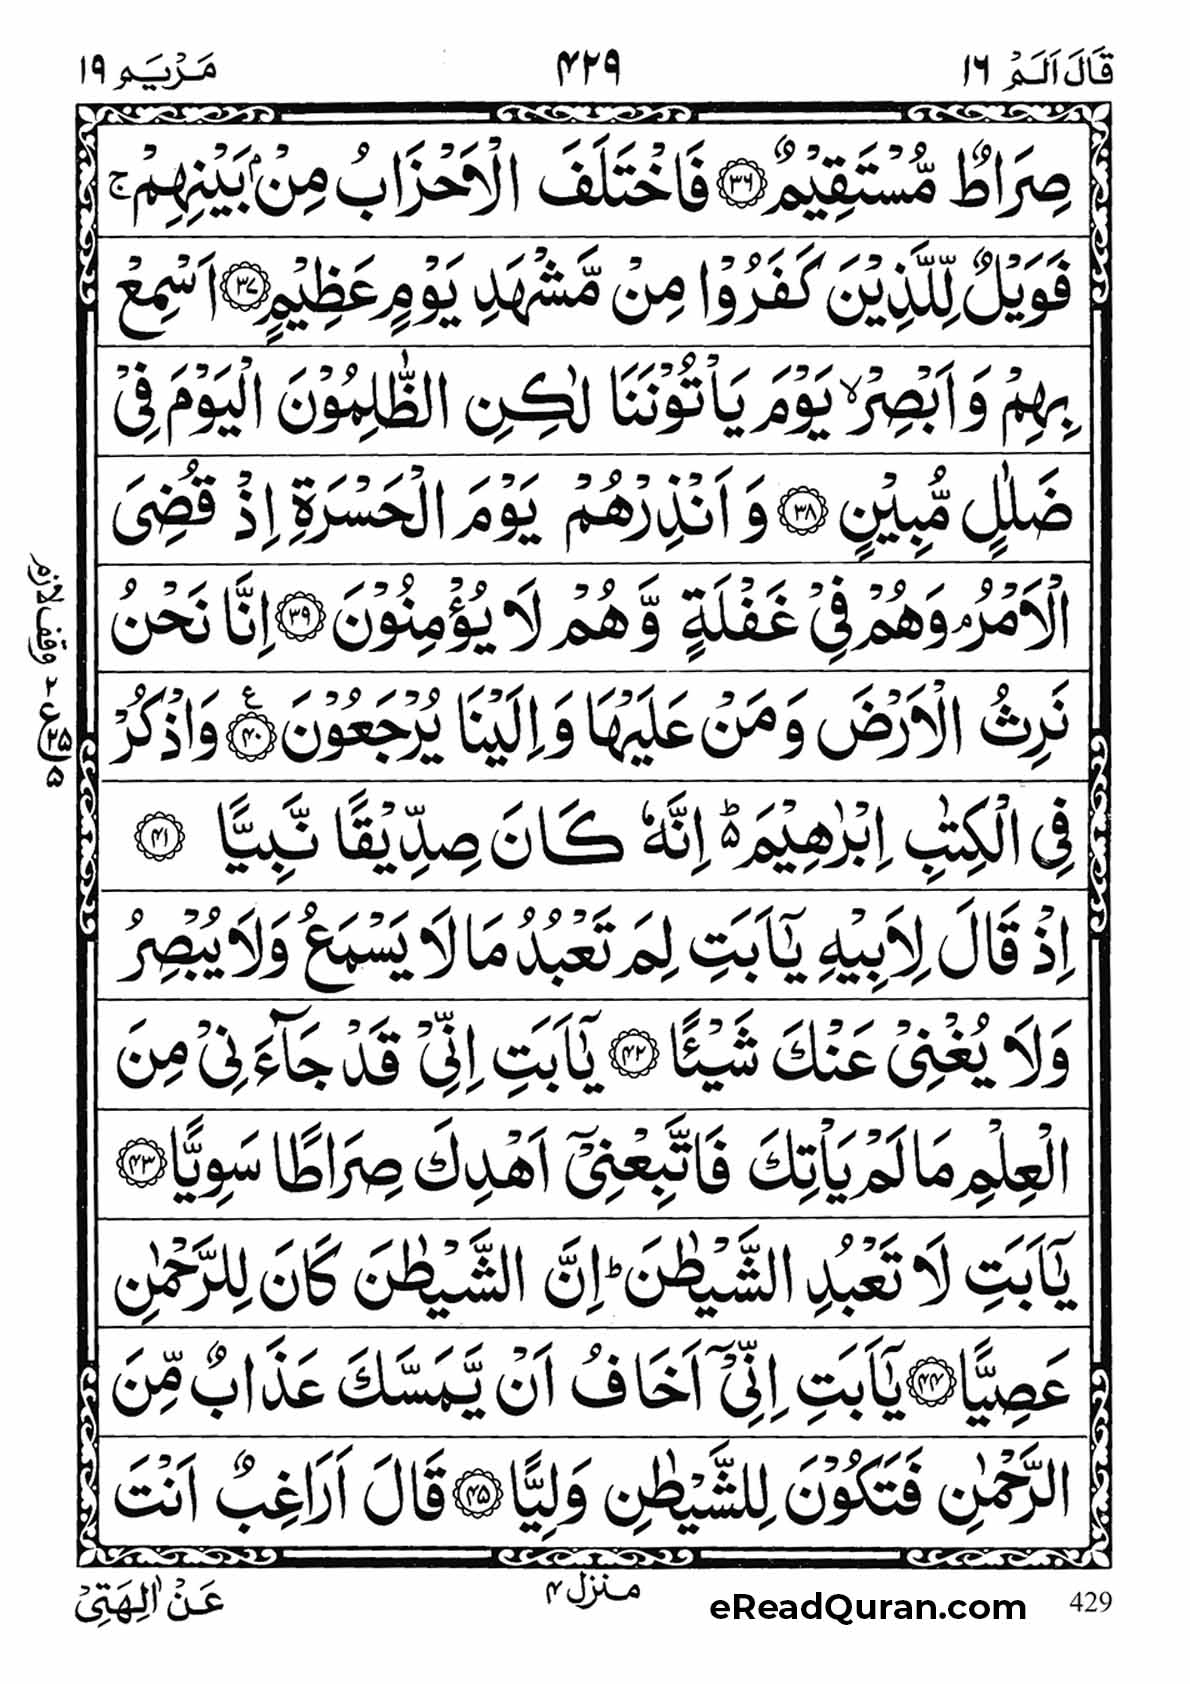 قَالَ اَلَمْ ١٦ ٤٢٩ مَرْيَم ١٩
صِرَاطٌ مُّسْتَقِيْمٌ ﴿٣٦﴾ فَاخْتَلَفَ الْاَحْزَابُ مِنْۢ بَيْنِهِمْ ۚ
فَوَيْلٌ لِّلَّذِيْنَ كَفَرُوْا مِنْ مَّشْهَدِ يَوْمٍ عَظِيْمٍ ﴿٣٧﴾ اَسْمِعْ
بِهِمْ وَاَبْصِرْ ۙ يَوْمَ يَاْتُوْنَنَا لٰكِنِ الظّٰلِمُوْنَ الْيَوْمَ فِيْ
ضَلٰلٍ مُّبِيْنٍ ﴿٣٨﴾ وَاَنْذِرْهُمْ يَوْمَ الْحَسْرَةِ اِذْ قُضِيَ
الْاَمْرُ ۘ وَهُمْ فِيْ غَفْلَةٍ وَّهُمْ لَا يُؤْمِنُوْنَ ﴿٣٩﴾ اِنَّا نَحْنُ
نَرِثُ الْاَرْضَ وَمَنْ عَلَيْهَا وَاِلَيْنَا يُرْجَعُوْنَ ﴿٤٠﴾ ع وَاذْكُرْ
فِي الْكِتٰبِ اِبْرٰهِيْمَ ؕ۬ اِنَّهٗ كَانَ صِدِّيْقًا نَّبِيًّا ﴿٤١﴾
اِذْ قَالَ لِاَبِيْهِ يٰۤاَبَتِ لِمَ تَعْبُدُ مَا لَا يَسْمَعُ وَلَا يُبْصِرُ
وَلَا يُغْنِيْ عَنْكَ شَيْـًٔا ﴿٤٢﴾ يٰۤاَبَتِ اِنِّيْ قَدْ جَآءَنِيْ مِنَ
الْعِلْمِ مَا لَمْ يَاْتِكَ فَاتَّبِعْنِيْۤ اَهْدِكَ صِرَاطًا سَوِيًّا ﴿٤٣﴾
يٰۤاَبَتِ لَا تَعْبُدِ الشَّيْطٰنَ ؕ اِنَّ الشَّيْطٰنَ كَانَ لِلرَّحْمٰنِ
عَصِيًّا ﴿٤٤﴾ يٰۤاَبَتِ اِنِّيْۤ اَخَافُ اَنْ يَّمَسَّكَ عَذَابٌ مِّنَ
الرَّحْمٰنِ فَتَكُوْنَ لِلشَّيْطٰنِ وَلِيًّا ﴿٤٥﴾ قَالَ اَرَاغِبٌ اَنْتَ
وقف لازم
٢ ع ٢٥ ٥
عَنْ اٰلِهَتِيْ منزل ٤ eReadQuran.com 429